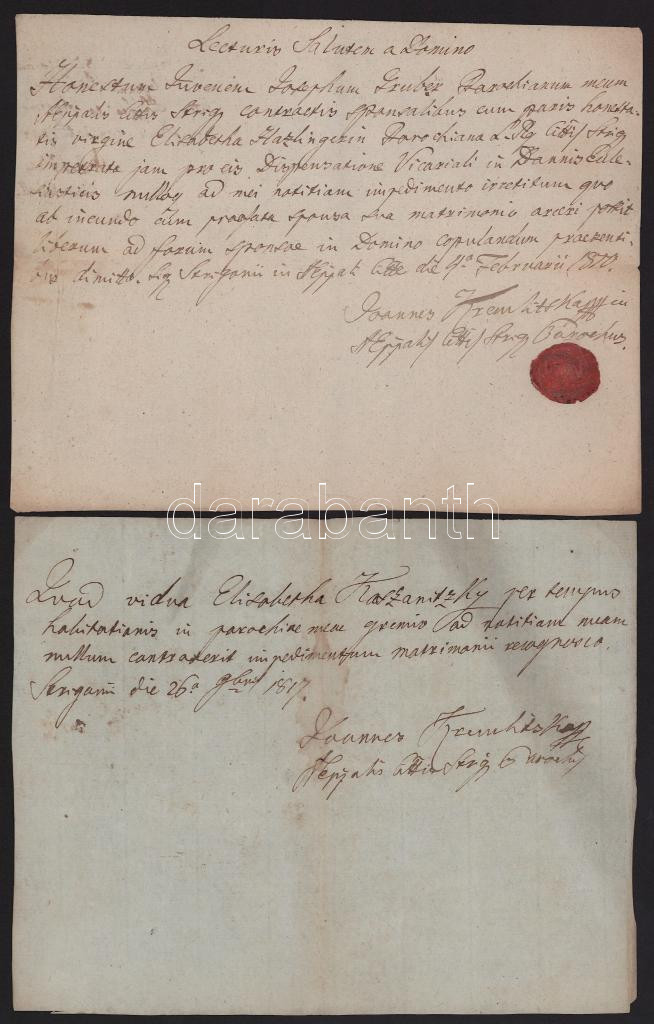 Lecturis Salutem a Domino
Honestum Juvenem Josephum Gruber Parochianum meum
contractis sponsalibus cum paris honesta-
tis virgine Elisabetha Hazlingerin Parochiana
impetrata jam pro eis Dispensatione Vicariali in Bannis Eccle-
siasticis ad mei notitiam impedimento irretitum quo
ab ineundo cum praefata sponsa sua matrimonio arceri possit
liberum ad forum sponsae in Domino copulandum praesenti-
bus dimitto. Sig Strigonii in die 4a Februarii
Joannes
Parochus.
darabanth
Quod vidua Elisabetha Kaszanitzky per tempus
habitationis in parochiae meae gremio ad notitiam meam
nullum contraxerit impedimentum matrimonii recognosco.
Strigonii die 26a 9bris 1817.
Joannes
Strig Parochus